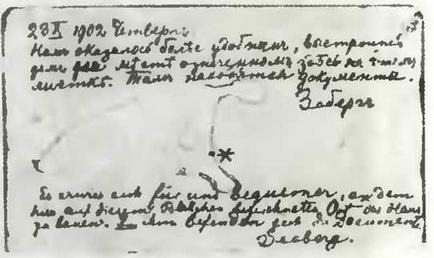 23 X 1902 Четвергъ
Намъ оказалось болѣе удобнымъ, выстроить
домъ на мѣстѣ означенномъ здѣсь на этомъ
листкѣ. Тамъ находятся документы.
Зебергъ
Es erwies sich für uns bequemer, an dem
hier auf diesem Blättchen bezeichneten Ort das Haus
zu bauen. Dort befinden sich die Documente.
Seeberg.